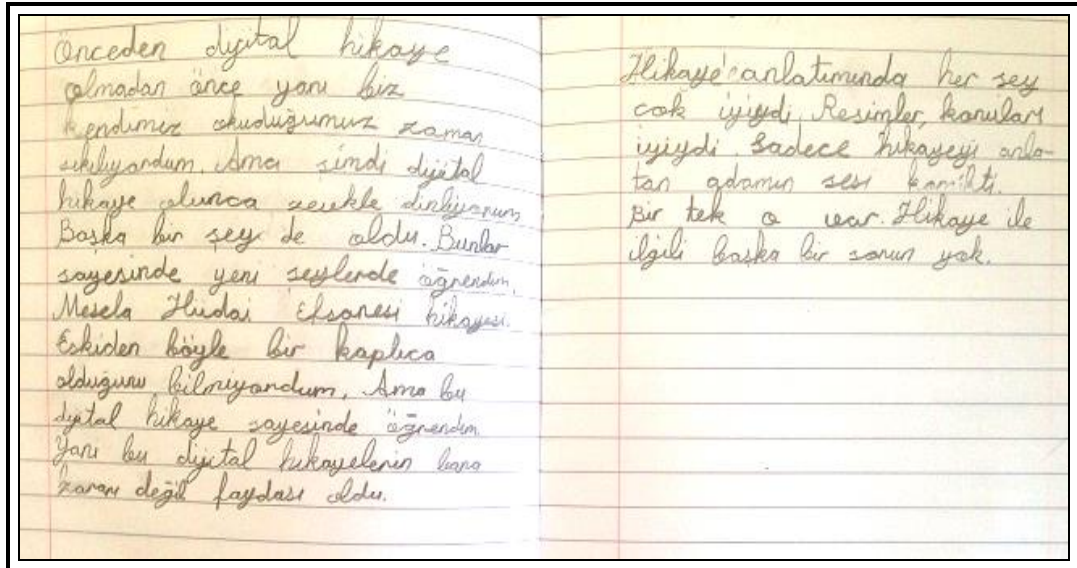 Önceden dijital hikaye
olmadan önce yani biz
kendimiz okuduğumuz zaman
sıkılıyordum. Ama şimdi dijital
hikaye olunca zevkle dinliyorum
Başka bir şey de oldu. Bunlar
sayesinde yeni şeylerde öğrendim.
Mesela Hüdai Efsanesi hikayesi.
Eskiden böyle bir kaplıca
olduğunu bilmiyordum. Ama bu
dijital hikaye sayesinde öğrendim
Yani bu dijital hikayelerin bana
zararı değil faydası oldu.
Hikaye anlatımında her şey
çok iyiydi. Resimler, konuları
iyiydi. Sadece hikayeyi anla-
tan adamın sesi
Bir tek o var. Hikaye ile
ilgili başka bir sorun yok.